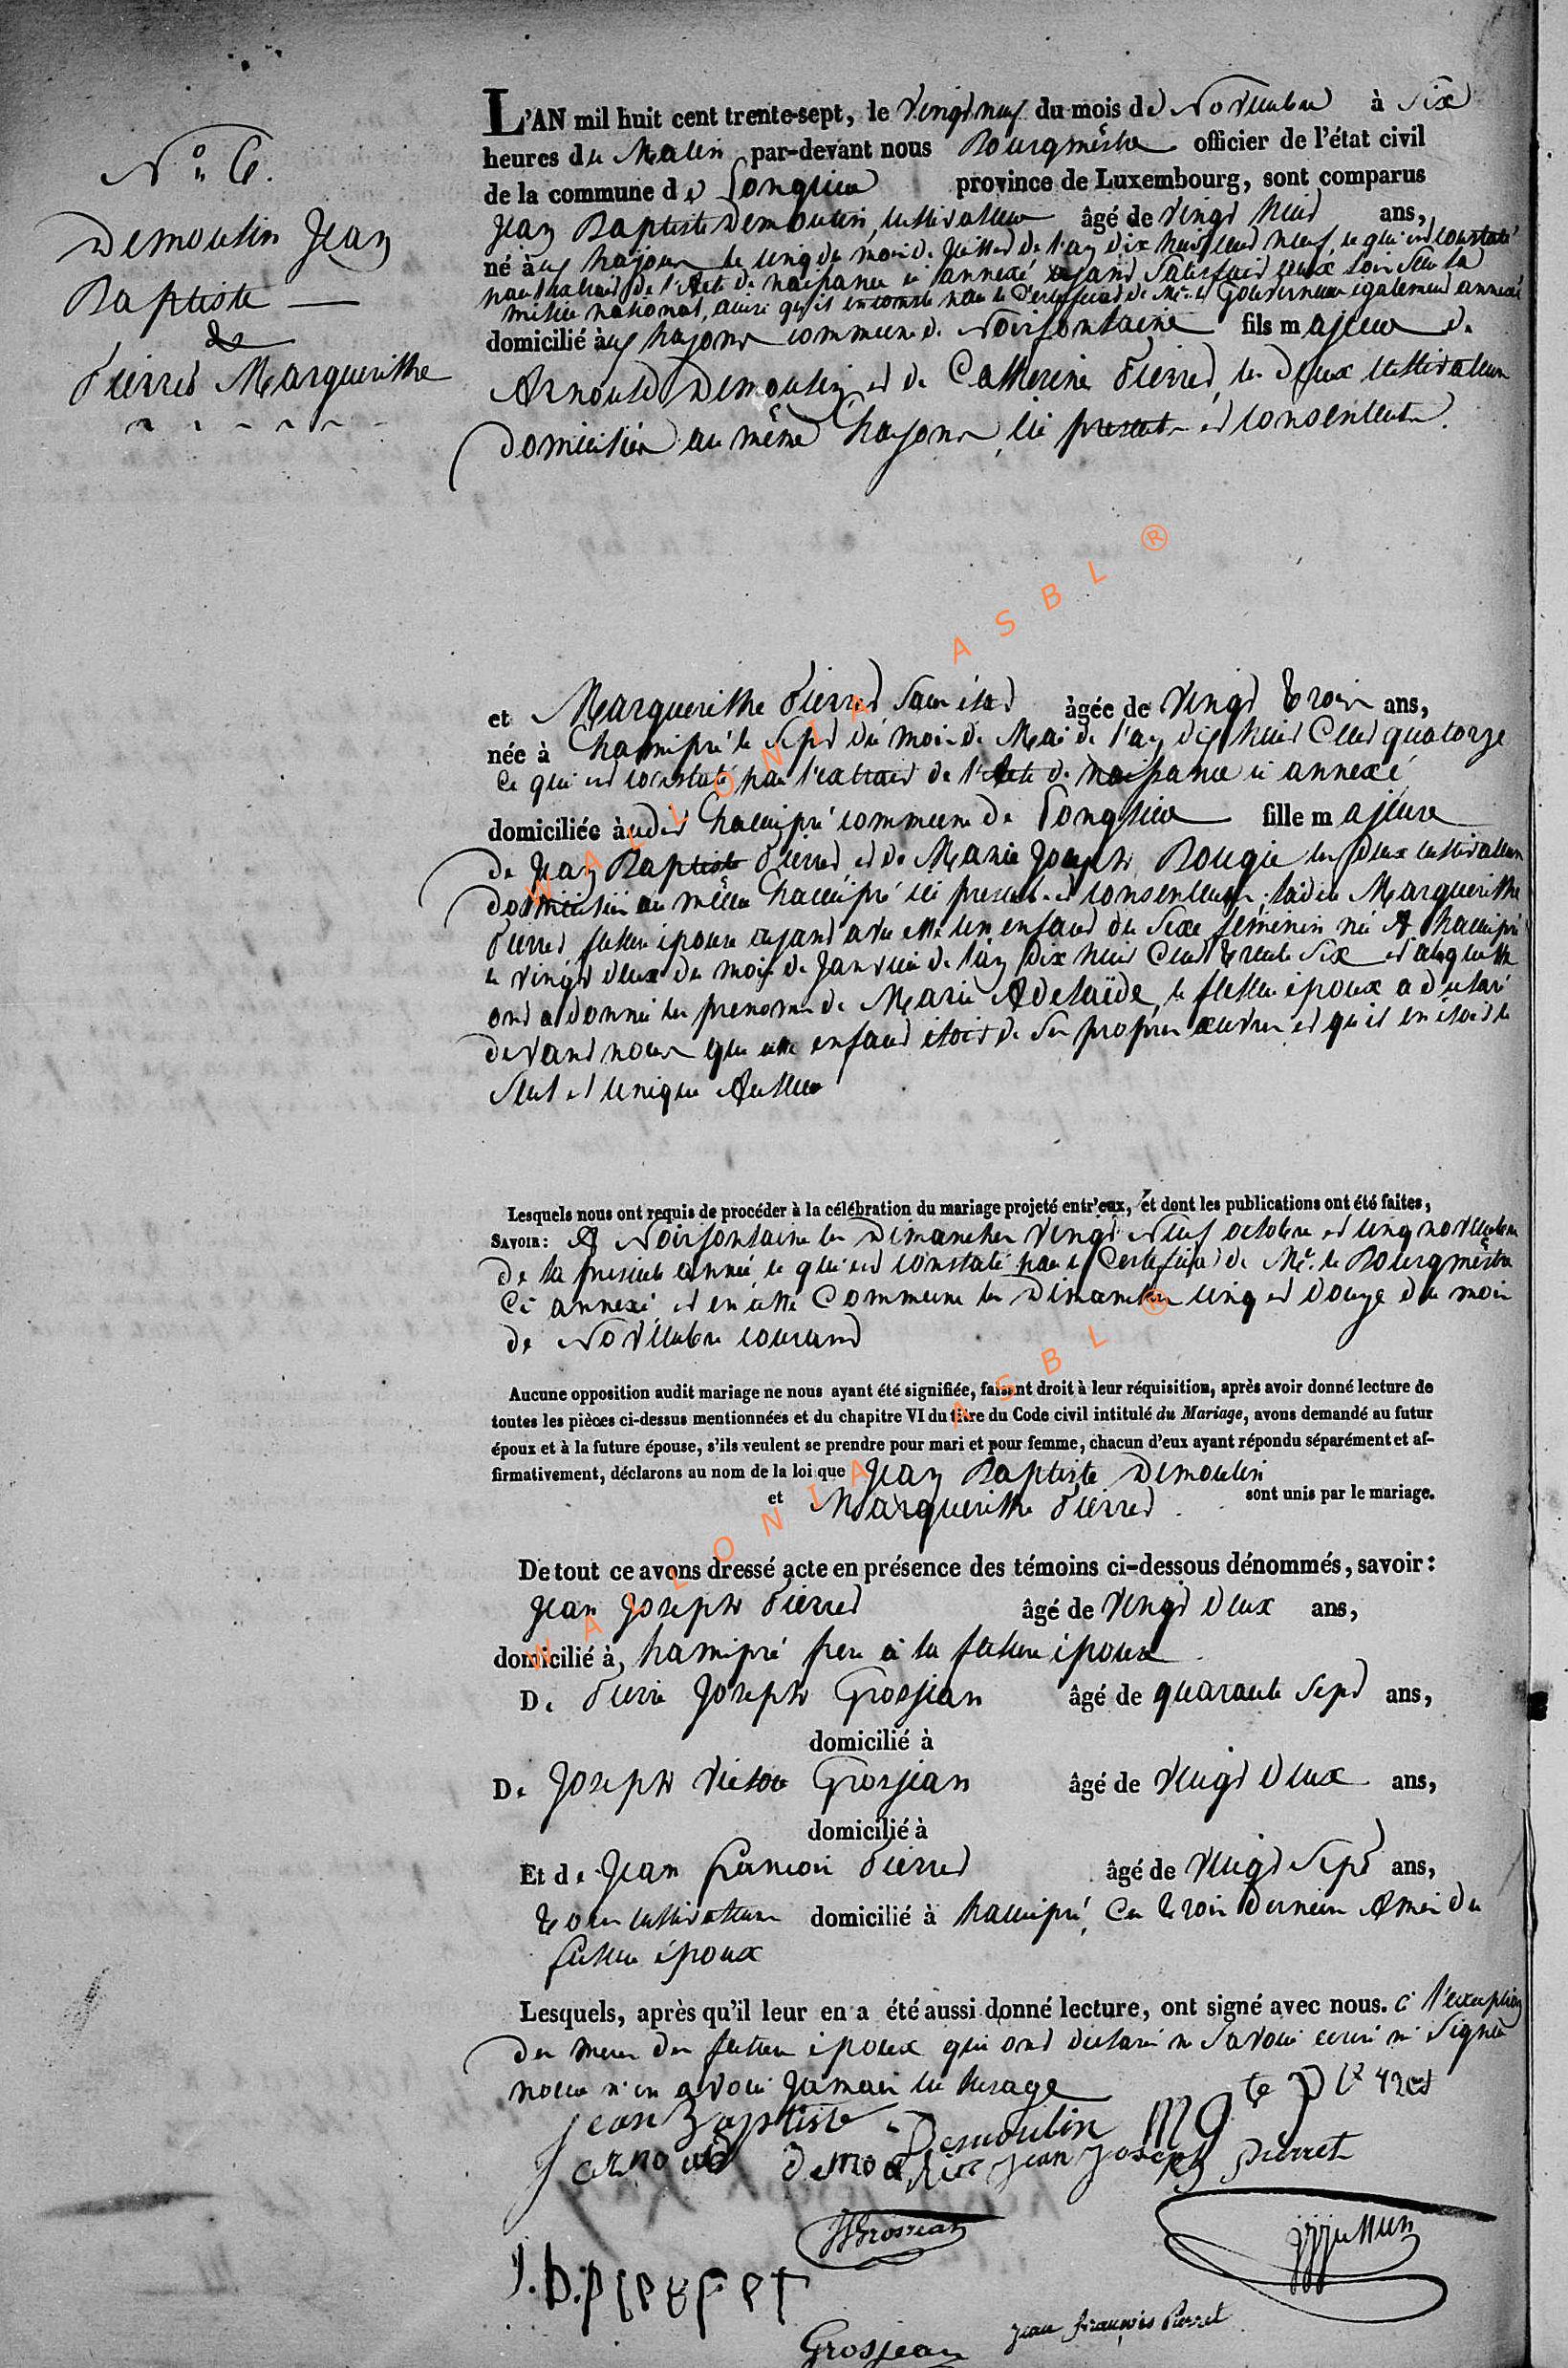 N.° 6.
Demoulin Jean
Baptiste —
&
Pierret Marguerithe
L'AN mil huit cent trente-sept, le vingt neuf du mois de Novembre à Six
heures du Matin par-devant nous Bourgmèstre officier de l'état civil
de la commune de Longlier province de Luxembourg, sont comparus
Jean Baptiste Demoulin, cultivateur âgé de vingt huit ans,
né aux hayons le cinq du mois de Juillet de l'an dix huit cent neuf, ce qui est constaté
par l'extrait de l'Acte de naissance ci annexé ayant Satisfait aux Loix sur la
milice national, ainsi qu'il en conste par le Certificat de Mr. le Gouverneur également annexé
domicilié aux hayons commune de Noirfontaine fils majeur de
Arnould Demoulin et de Catherine Pierret, les deux cultivateurs
domiciliés au même hayons, ici présents et consentents.
et Marguerithe Pierret Sans état âgée de vingt trois ans,
née à hamipré le Sept du mois de Mai de l'an dix huit Cent quatorze
Ce qui est constaté par l'extrait de l'Acte de naissance ci annexé
domiciliée audit hamipré commune de Longlier fille majeure
de Jean Baptiste Pierret et de Marie Joseph Bougie les deux cultivateurs
domiciliés au même hamipré ici présents et consentents. ladite Marguerithe
Pierret future épouse ayant avu elle un enfant du Sexe féminin né A hamipré
le vingt deux du mois de Janvier de l'an dix huit Cent trente Six et auquelle
ont a donné les prenoms de Marie Adelaïde, le futur époux a déclaré
devant nous que cette enfant étoit de ses propres œuvres et qu'il en étoit le
Seul et unique Auteur
Lesquels nous ont requis de procéder à la célébration du mariage projeté entr'eux, et dont les publications ont été faites,
SAVOIR: A Noirfontaine les Dimanches vingt Neuf octobre et cinq novembre
de la présente année ce qui est constaté par le Certificat de Mr. le Bourgmèstre
Ci annexé et en cette Commune les Dimanches cinq et douze du mois
de Novembre courant
Aucune opposition audit mariage ne nous ayant été signifiée, faisant droit à leur réquisition, après avoir donné lecture de
toutes les pièces ci-dessus mentionnées et du chapitre VI du titre du Code civil intitulé du Mariage, avons demandé au futur
époux et à la future épouse, s'ils veulent se prendre pour mari et pour femme, chacun d'eux ayant répondu séparément et af-
firmativement, déclarons au nom de la loi que Jean Baptiste Demoulin
et Marguerithe Pierret sont unis par le mariage.
De tout ce avons dressé acte en présence des témoins ci-dessous dénommés, savoir:
Jean Joseph Pierret âgé de vingt deux ans,
domicilié à, hamipré frere à la future épouse
De Pierre Joseph Grosjean âgé de quarante Sept ans,
domicilié à
De Joseph Victor Grosjean âgé de vingt deux ans,
domicilié à
Et de Jean françois Pierret âgé de vingt Sept ans,
tous cultivateurs domicilié à hamipré, Ces trois derniers Amis du
futur époux
Lesquels, après qu'il leur en a été aussi donné lecture, ont signé avec nous. à l'exception
des meres des futurs époux qui ont déclaré ne Savoir ecrire ni Signer
pour n'en avoir Jamais eu l'usage
Jean Baptiste Demoulin
arnould Demoulin Jean Joseph Pierret
JVGrosjean
J.b.pierret
Grosjean Jean François Pierret
WALLONIA ASBL ®
WALLONIA ASBL ®